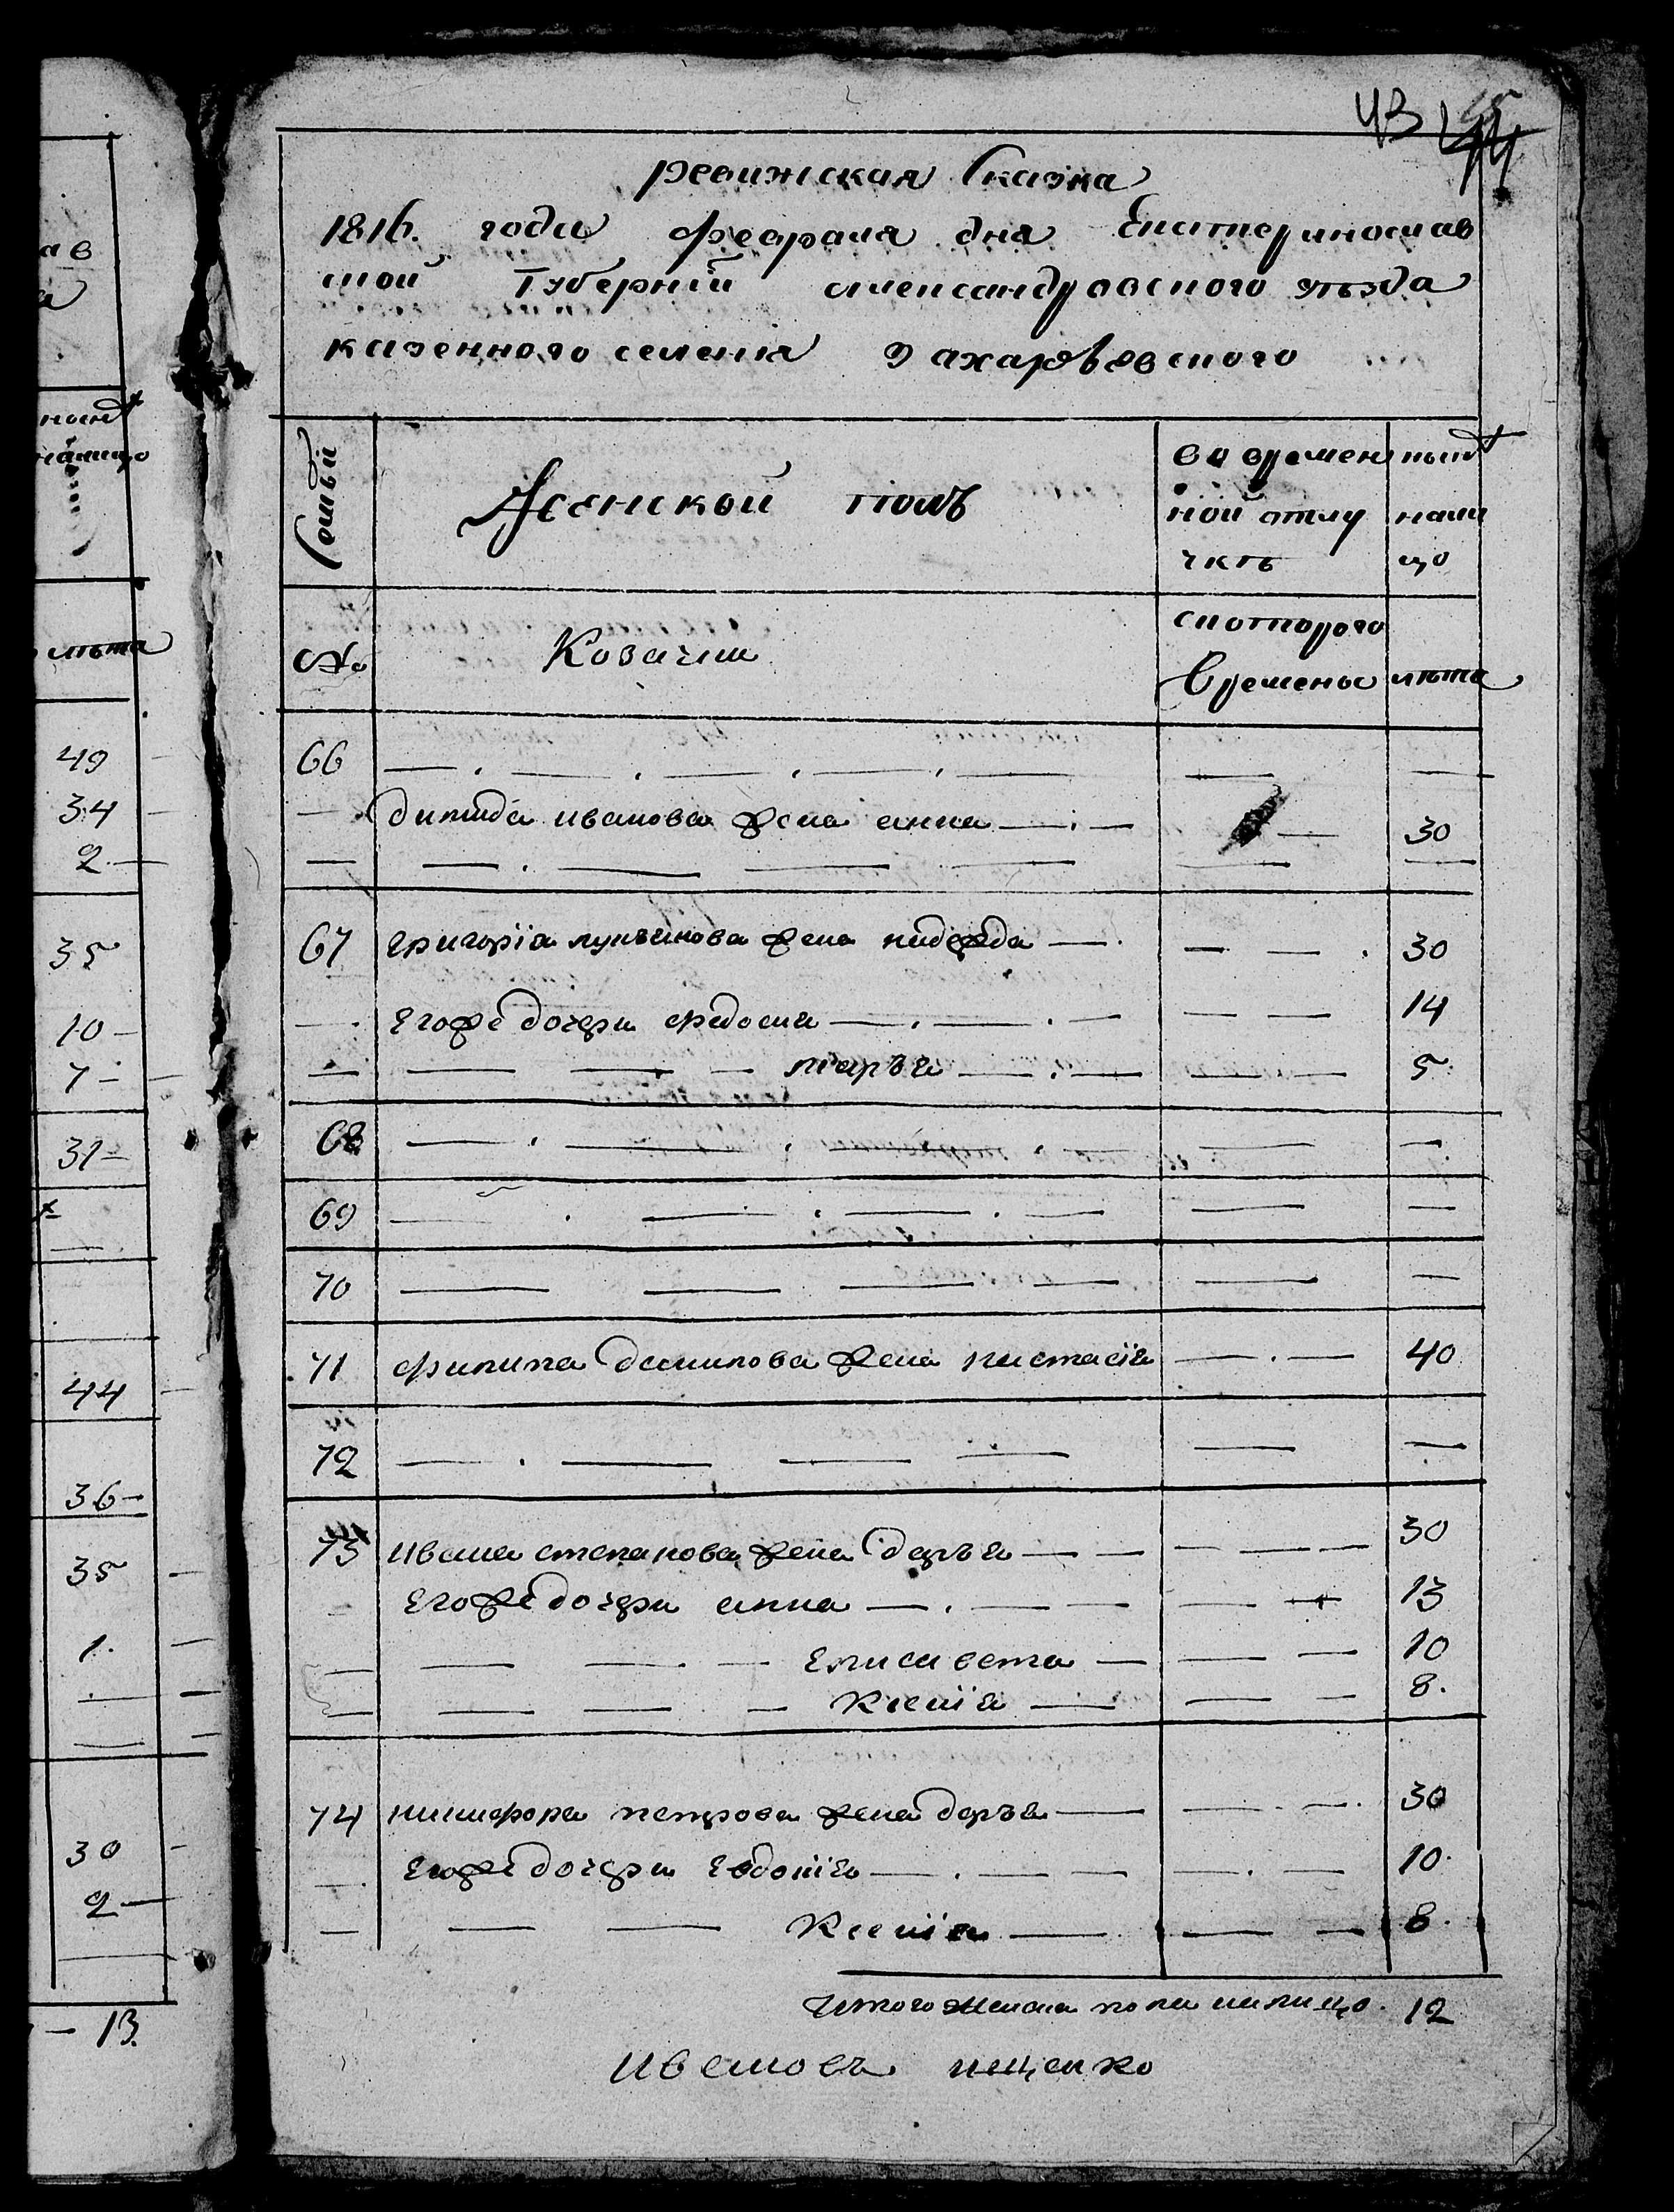 43
ревижская Сказка
1816. года февраля дня Екатеринослав
ской Губерній Александровского уѣзда
казенного селенія Захарьевского
Семьи
Женской полъ
во времен
ной отлу
чкѣ
нынѣ
нали
цо
№
Козачки
съкоторого
времены
лѣта
66
Демида иванова жена анна 30
67 григорія жена надежда 30
Его же дочери федосия 14
марья 5
68
69
70
71 филипа данилова жена настасія 40
72
73 ивана степанова жена дарья 30
Его же дочери анна 13
Елисавета 10
Ксенія 8.
74 никифора петрова жена дарья 30
Его же дочери Евдокія 10.
Ксенія 8.
Итого женска пола налицо. 12
ищенко
49
34
2
35
10
7
31
44
36
35
1.
30
2
13.